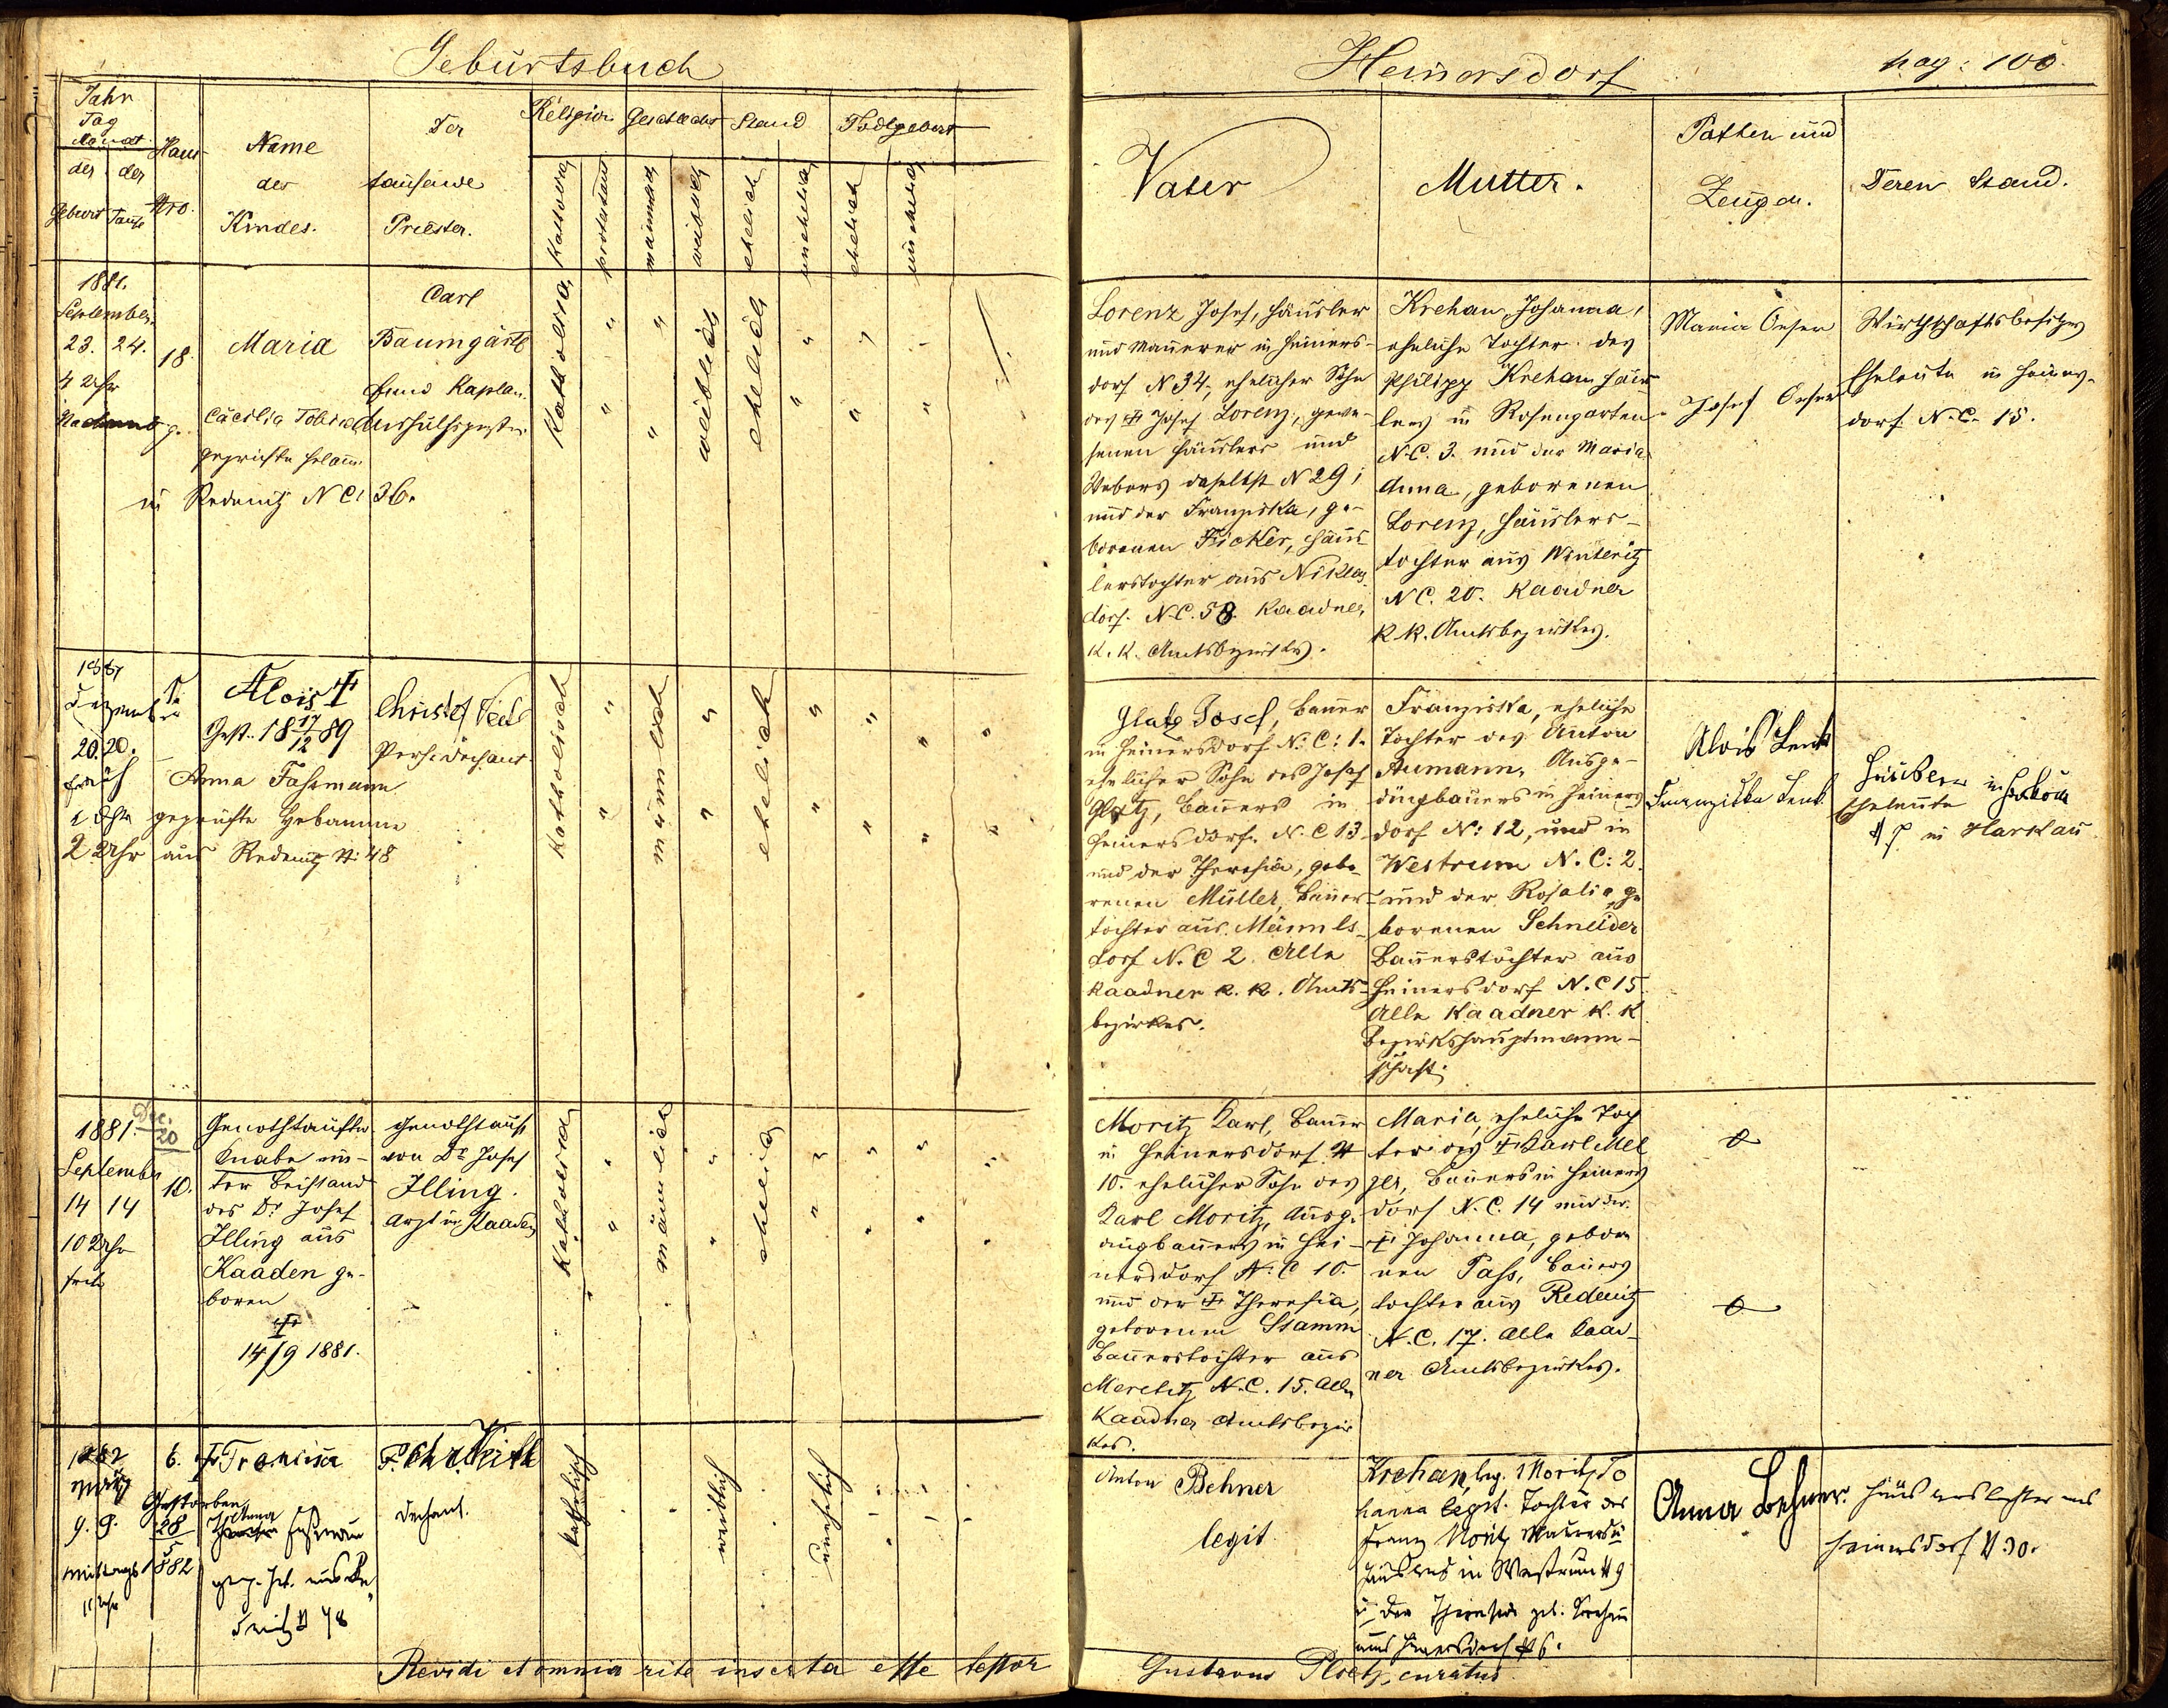 Geburtsbuch
Heinersdorf
pag: 100.
Jahr
Tag
Monat
der der
Geburt Taufe
Haus
Nro.
Name
des
Kindes.
Der
taufende
Priester.
Religion
Geschlecht
Stand
Todtgeburt
katholisch
protestant
männlich
weiblich
ehelich
unehelich
ehelich
unehelich
Vater
Mutter.
Pathen und
Zeugen.
Deren Stand.
1881.
September
23. 24.
4 Uhr
Nachmittg.
18.
Maria
Cäcilia
geprüfte Hebam̅.
in Redenitz N C: 36.
Carl
Baumgartl
Kaplan.
Katholisch
weiblich
ehelich
Lorenz Josef, Häusler
und Maurer in Heiners-
dorf N 34, ehelicher Sohn
des ☩ Josef Lorenz, gewe-
senen Häuslers und
Webers daselbst N 29;
und der Franziska, ge-
borenen Ficker, Häus-
lerstochter aus Niklas-
dorf. N.C. 58. Kaadner
K. K. Amtsbezirkes.
Krehan, Johanna,
eheliche Tochter des
Philipp Krehan Häus
lers in Rosengarten
N.C. 3. und der Maria
Anna, geborenen
Lorenz, Häuslers-
tochter aus Winteritz
N C. 20. Kaadner
K. K. Amtsbezirkes.
Maria Oeser
Josef Oeser
Wirthschaftsbesitzers
Eheleute in Heiners-
dorf. N.C. 15.
1881
Dezember
20. 20.
früh
2 Uhr
Alois ☩
Gest. 18 17/12 89
Anna Faßmann
geprüfte Hebamme
aus Redenitz N: 48
Christof
Katholisch
männlich
ehelich
Glatz Josef, Bauer
in Heinersdorf N: C: 1.
ehelicher Sohn des Josef
Glatz, Bauers in
Heinersdorf. N. C 13
und der Theresia, gebo-
renen Müller, Bauers-
tochter aus Männels-
dorf N. C 2. Alle
Kaadner K. K. Amts-
bezirkes.
Franziska, eheliche
Tochter des Anton
Aumann, Ausge-
dingbauers in Heiners
dorf N: 12, und in
Westrum N. C: 2.
und der Rosalia, ge
borenen Schneider
Bauerstochter aus
Heinersdorf N. C 15.
Alle Kaadner K. K.
Bezirkshauptmann-
schaft.
Alois Lenk
Franziska Lenk
Häusler in
Eheleute
in Harkau
1881.
Dec.
20
September
14 14
10 Uhr
früh
10.
Genothtaufter
Knabe un-
ter Beistand
des Dr Josef
Illing aus
Kaaden ge-
boren
☩
14/9 1881.
Genothtauft
von Dr Josef
Illing.
Arzt in Kaaden
Katholisch
männlich
ehelich
Moritz Karl, Bauer
in Heinersdorf N
10. ehelicher Sohn des
Karl Moritz, Ausge-
dingbauers in Hei-
nersdorf N. C 10.
und der ☩ Theresia,
geborenen Stamm
Bauerstochter aus
Meretitz N. C. 15. Alle
Kaadner Amtsbezir
kes.
Maria, eheliche Toch
ter des ☩ Karl Mel
zer, Bauers in Heiners
dorf N. C. 14 und der
☩ Johanna, gebore
nen Paß, Bauers
tochter aus Redenitz
N. C. 17. Alle Kaad-
ner Amtsbezirkes.
1882
März
9. 9.
Mittags
11 Uhr
6.
Gestorben
28
5
1882
☩ Francisca
Anna
Faßmann
gepr. Heb. aus Re
denitz N 48
P. Chr. Veith
Dechant.
katholisch
weiblich
unehelich
Anton Behner
legit.
Krehan, leg. Moritz Jo
hanna legit. Tochter des
Franz Moritz Maurers u
Häuslers in Westrum N 9
u der Theresia geb. Krehan
aus Heinersdorf N 6.
Anna Behner.
Häuslerstochter aus
Heinersdorf N 30.
Revidi et omnia rite inserta esse testor
Gustavus Ploetz, curatus